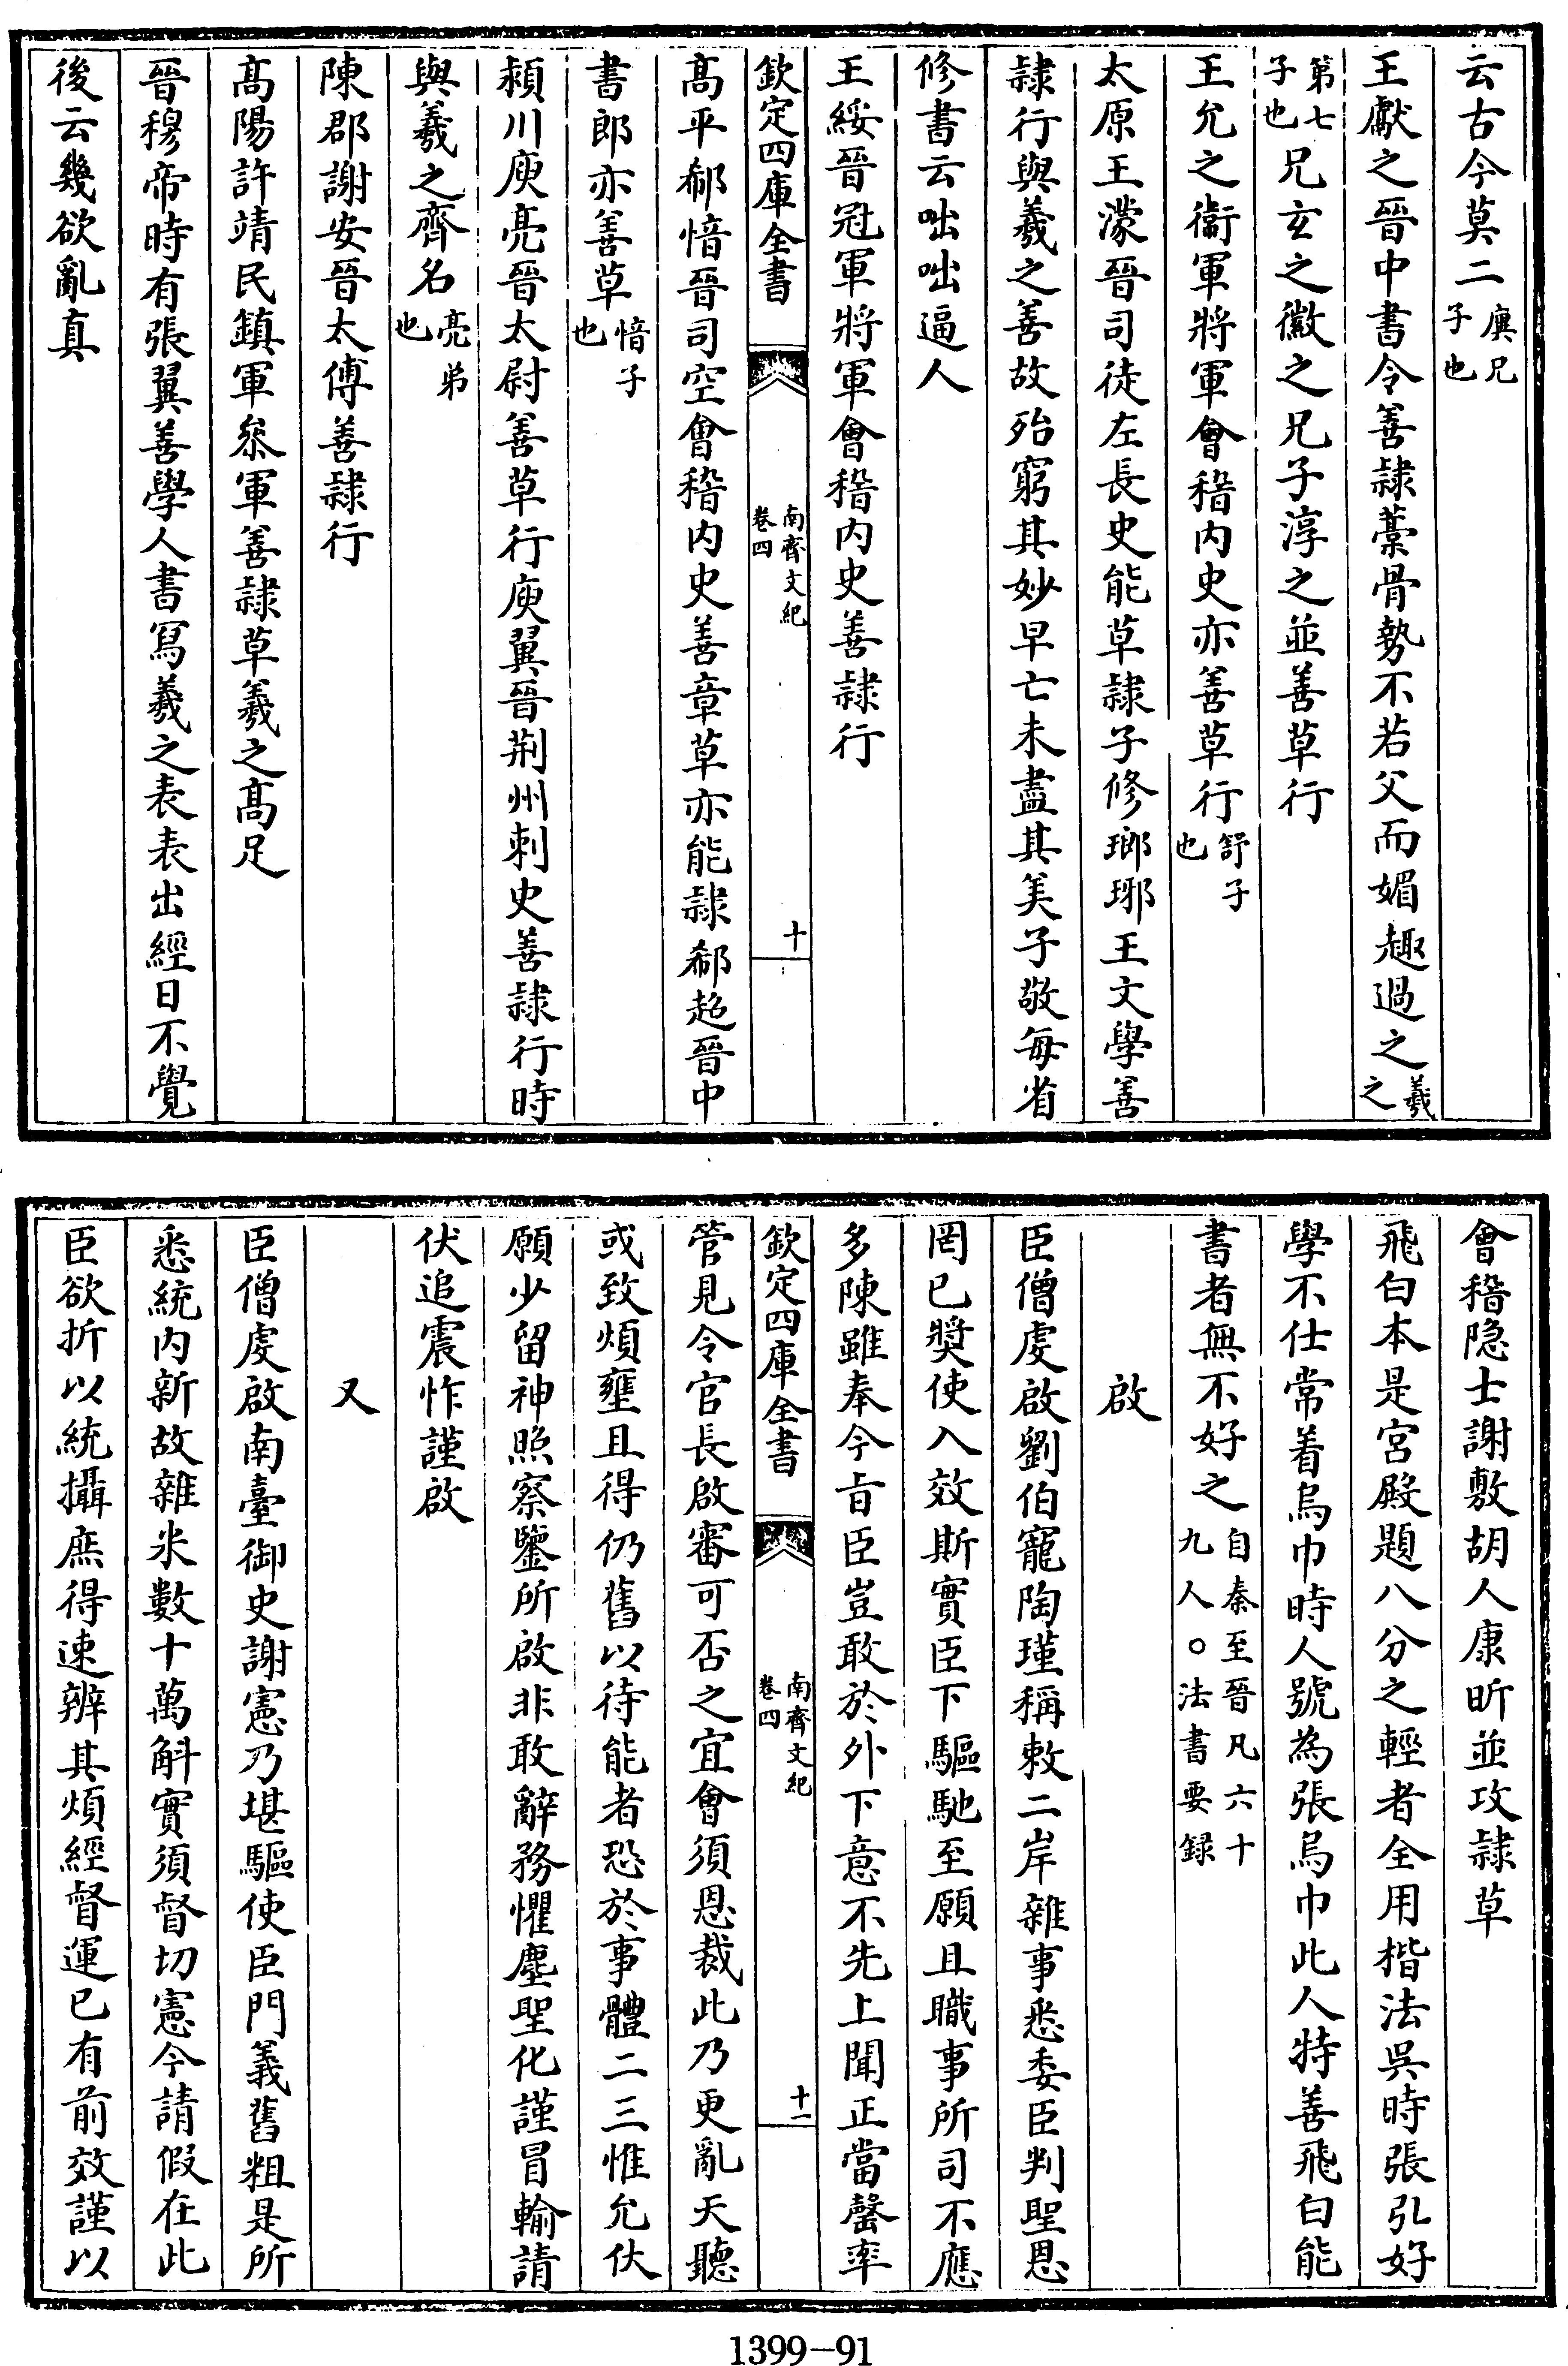 云古今莫二廙兄子也
王獻之晉中書令善隷藁骨勢不若父而媚趣過之羲之
第七子也兄玄之徽之兄子淳之並善草行
王允之衞軍將軍會稽内史亦善草行舒子也
太原王濛晉司徒左長史能草隷子修瑯琊王文學善
隷行與羲之善故殆窮其妙早亡未盡其美子敬每省
修書云咄咄逼人
王綏晉冠軍將軍會稽内史善隷行
欽定四庫全書 南齊文紀卷四 十
高平郗愔晉司空會稽内史善章草亦能隷郗超晉中
書郎亦善草愔子也
潁川庾亮晉太尉善草行庾翼晉荆州刺史善隷行時
與羲之齊名亮弟也
陳郡謝安晉太傅善隷行
高陽許靖民鎮軍叅軍善隷草羲之高足
晉穆帝時有張翼善學人書寫羲之表表出經日不覺
後云幾欲亂真
會稽隐士謝敷胡人康昕並攻隷草
飛白本是宮殿題八分之輕者全用楷法吳時張弘好
學不仕常着烏巾時人號為張烏巾此人特善飛白能
書者無不好之自秦至晉凡六十九人○法書要録
啟
臣僧虔啟劉伯寵陶瑾稱敕二岸雜事悉委臣判聖恩
罔已奬使入效斯實臣下驅馳至願且職事所司不應
多陳雖奉今旨臣豈敢於外下意不先上聞正當罄率
欽定四庫全書 南齊文紀卷四 十一
管見令官長啟審可否之宜會須恩裁此乃更亂天聽
或致煩壅且得仍舊以待能者恐於事體二三惟允伏
願少留神照察鑒所啟非敢辭務懼塵聖化謹冒輸請
伏追震怍謹啟
又
臣僧虔啟南臺御史謝憲乃堪驅使臣門義舊粗是所
悉統内新故雜米數十萬斛實須督切憲今請假在此
臣欲折以統攝庶得速辨其煩經督運已有前效謹以
1399-91